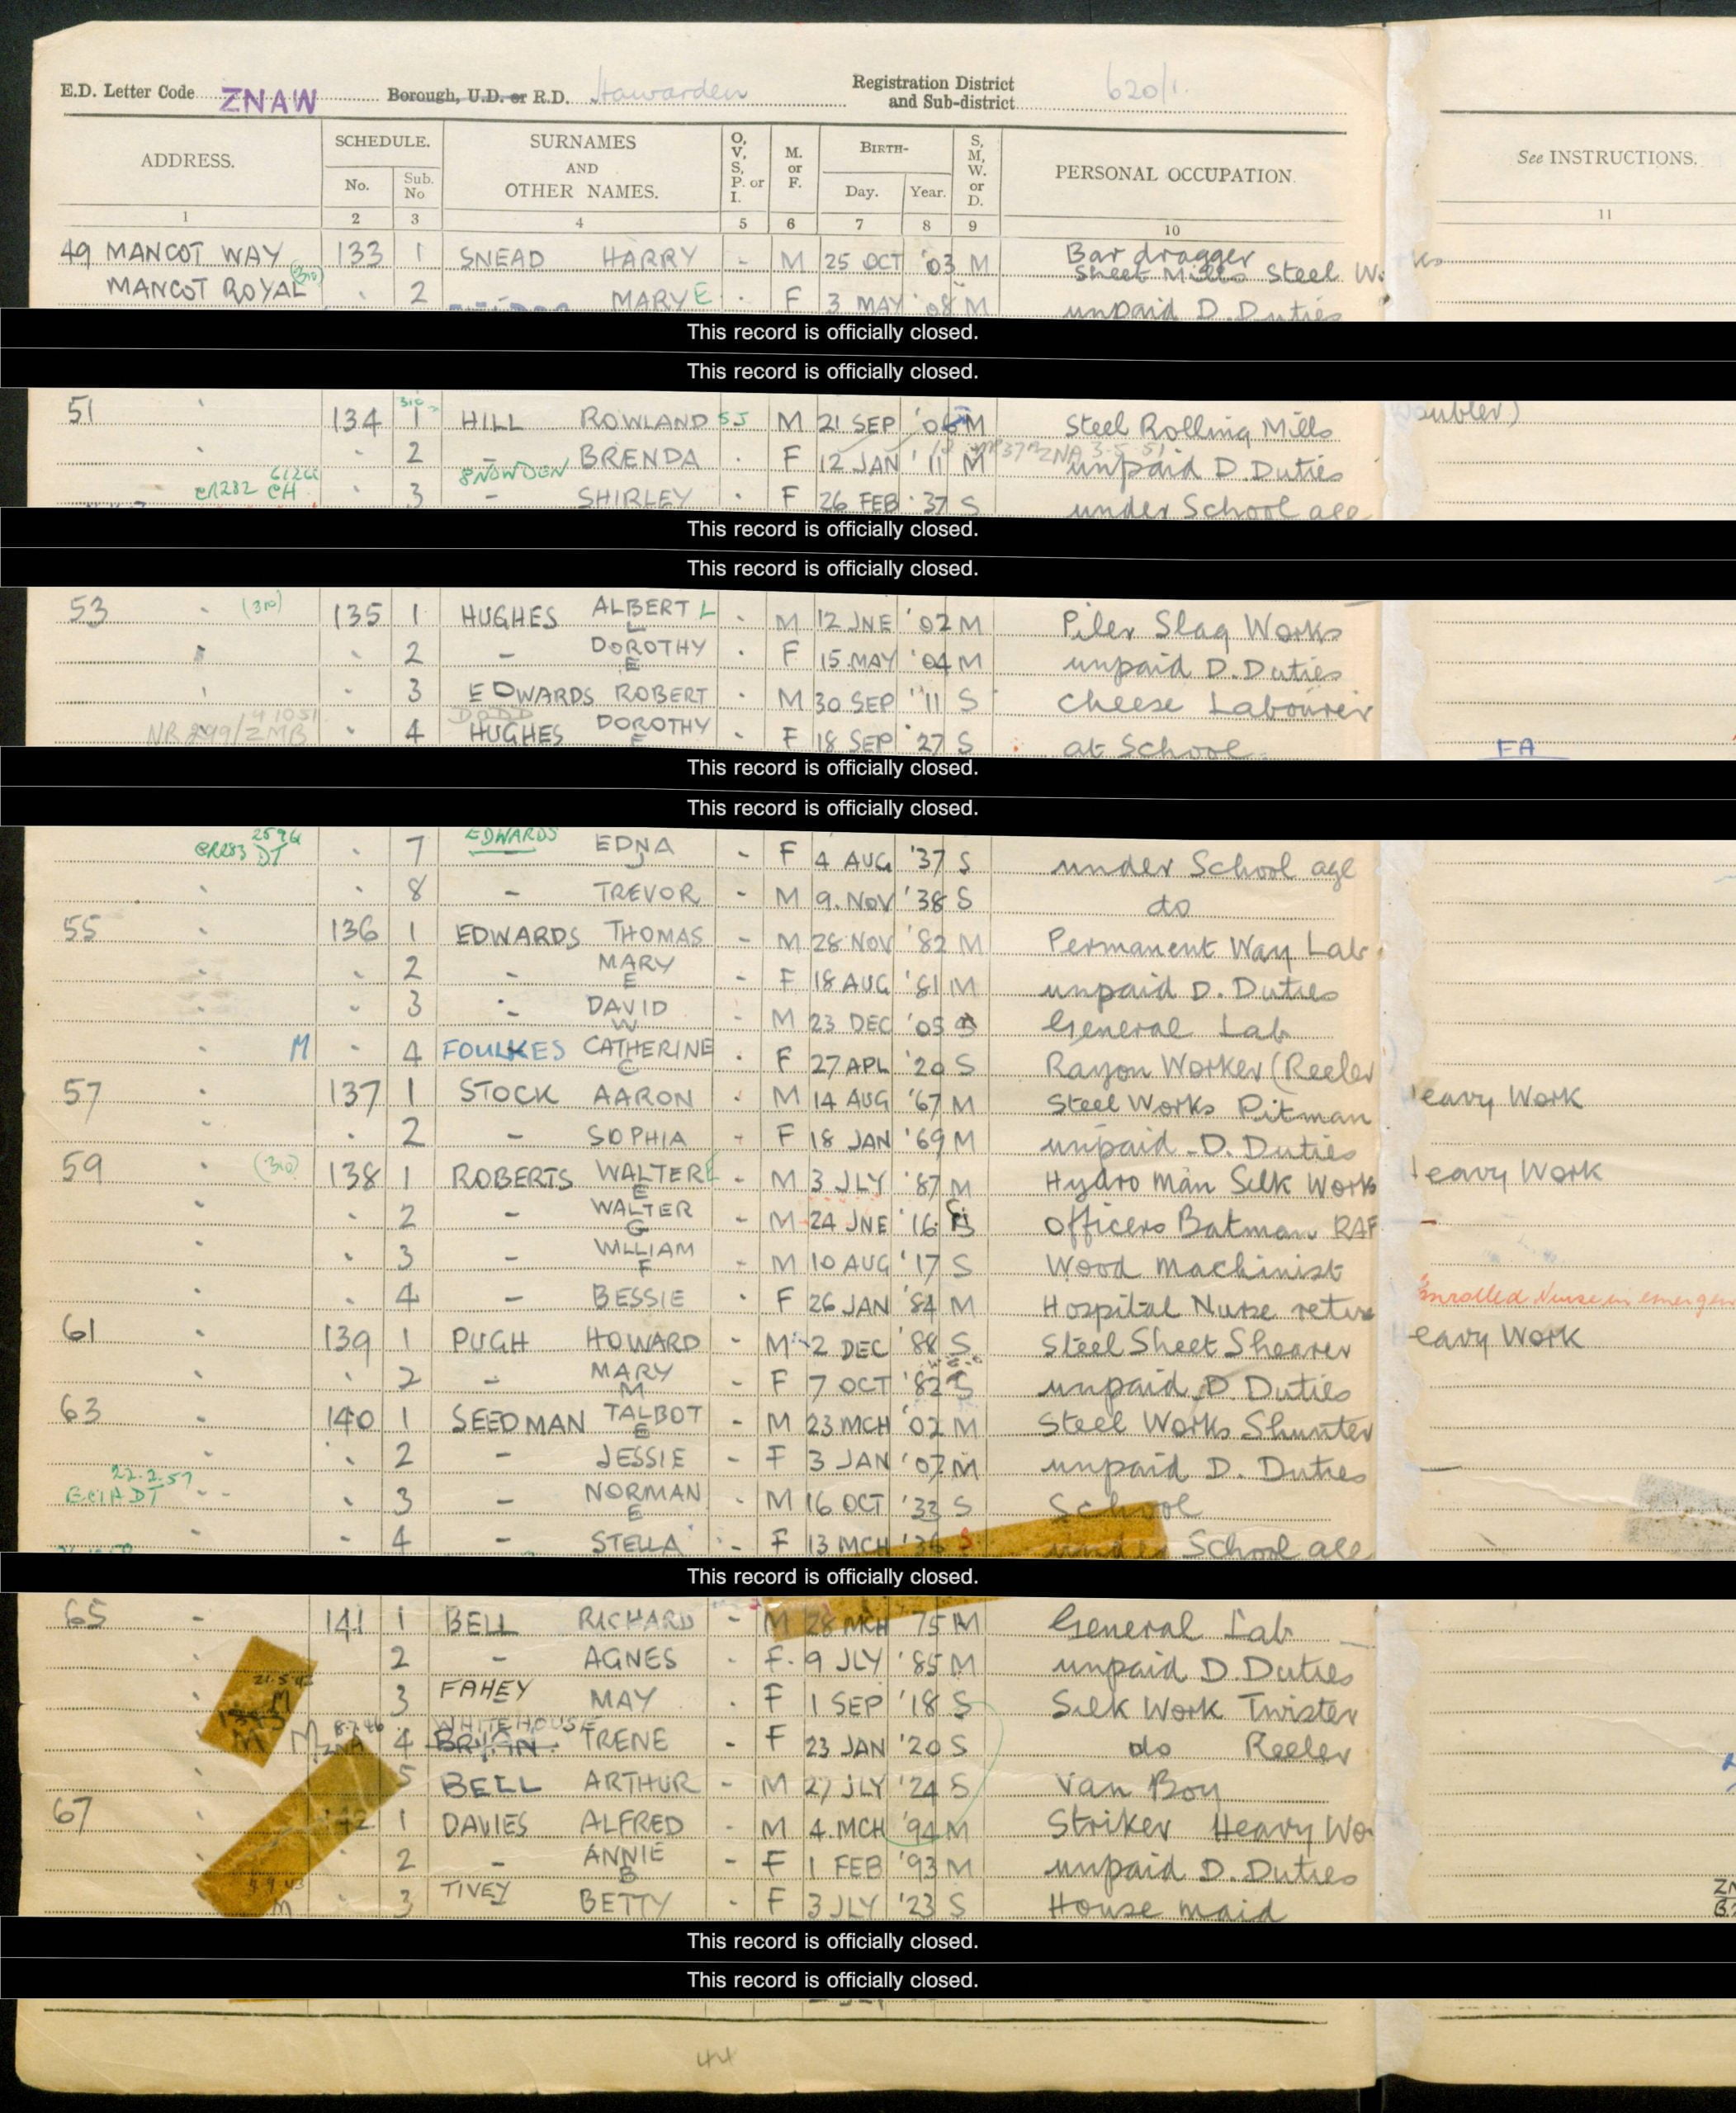 E.D. Letter Code ZNAW Borough, U.D. or R.D. Hawarden Registration District and Sub-district 620/1
ADDRESS. SCHEDULE. No. Sub. No SURNAMES AND OTHER NAMES. O, V, S, P. or I. M. or F. BIRTH- Day. Year. S, M, W. or D. PERSONAL OCCUPATION. See INSTRUCTIONS.
1 2 3 4 5 6 7 8 9 10 11
49 MANCOT WAY 133 1 SNEAD HARRY - M 25 OCT '03 M Bar dragger Sheet Mills Steel
MANCOT ROYAL (310) 2 MARY E F 3 MAY '08 M unpaid D. Duties
This record is officially closed.
This record is officially closed.
51 134 1 HILL ROWLAND SJ M 21 SEP '06 M Steel Rolling Mills
2 - BRENDA F 12 JAN '11 M unpaid D. Duties
CR282 CH 3 SNOWDEN - SHIRLEY F 26 FEB '37 S under School age
This record is officially closed.
This record is officially closed.
53 (310) 135 1 HUGHES ALBERT L - M 12 JNE '02 M Piler Slag Works
2 - DOROTHY E F 15 MAY '04 M unpaid D. Duties
3 EDWARDS ROBERT M 30 SEP '11 S Cheese Labourer
4 DODD HUGHES DOROTHY F 18 SEP '27 S at School FA
This record is officially closed.
This record is officially closed.
CR283 DT 7 EDWARDS - EDNA J - F 4 AUG '37 S under School age
8 - TREVOR - M 9 NOV '38 S do
55 136 1 EDWARDS THOMAS - M 28 NOV '82 M Permanent Way Lab
2 - MARY E - F 18 AUG '81 M unpaid D. Duties
3 - DAVID W - M 23 DEC '05 General Lab
M 4 FOULKES CATHERINE C F 27 APL '20 S Rayon Worker (Reeler
57 137 1 STOCK AARON M 14 AUG '67 M Steel Works Pitman eavy Work
2 - SOPHIA - F 18 JAN '69 M unpaid D. Duties
59 (310) 138 1 ROBERTS WALTER E - M 3 JLY '87 M Hydro Man Silk Works eavy Work
2 - WALTER G - M 24 JNE '16 Officers Batman RAF
3 - WILLIAM F - M 10 AUG '17 S Wood Machinist
4 - BESSIE F 26 JAN '84 M Hospital Nurse Enrolled Nurse in
61 139 1 PUGH HOWARD - M 2 DEC '88 S Steel Sheet Shearer eavy Work
2 - MARY M - F 7 OCT '82 S unpaid D. Duties
63 140 1 SEEDMAN TALBOT E - M 23 MCH '02 M Steel Works Shunter
2 - JESSIE - F 3 JAN '07 M unpaid D. Duties
22.2.57 3 - NORMAN E - M 16 OCT '33 S School
4 - STELLA - F 13 MCH '36 S under School age
This record is officially closed.
65 141 1 BELL RICHARD - M 28 MCH 75 M General Lab
2 - AGNES - F 9 JLY '85 M unpaid D. Duties
3 FAHEY MAY F 1 SEP '18 S Silk Work Twister
M 8.7.46 ZNA 4 WHITEHOUSE BRYAN IRENE - F 23 JAN '20 S do Reeler
5 BELL ARTHUR - M 27 JLY '24 S Van Boy
67 142 1 DAVIES ALFRED - M 4 MCH '94 M Striker Heavy
2 - ANNIE B - F 1 FEB '93 M unpaid D. Duties
M 3 TIVEY - BETTY - F 3 JLY '23 S House maid
This record is officially closed.
This record is officially closed.
44